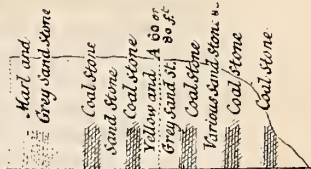 Marl and
Grey Sand Stone
Coal Stone
Sand Stone
Coal Stone
Yellow and A 60 or
80 ft
Grey Sand St.
Coal Stone
Various Sand Stons &.
Coal Stone
Coal Stone.